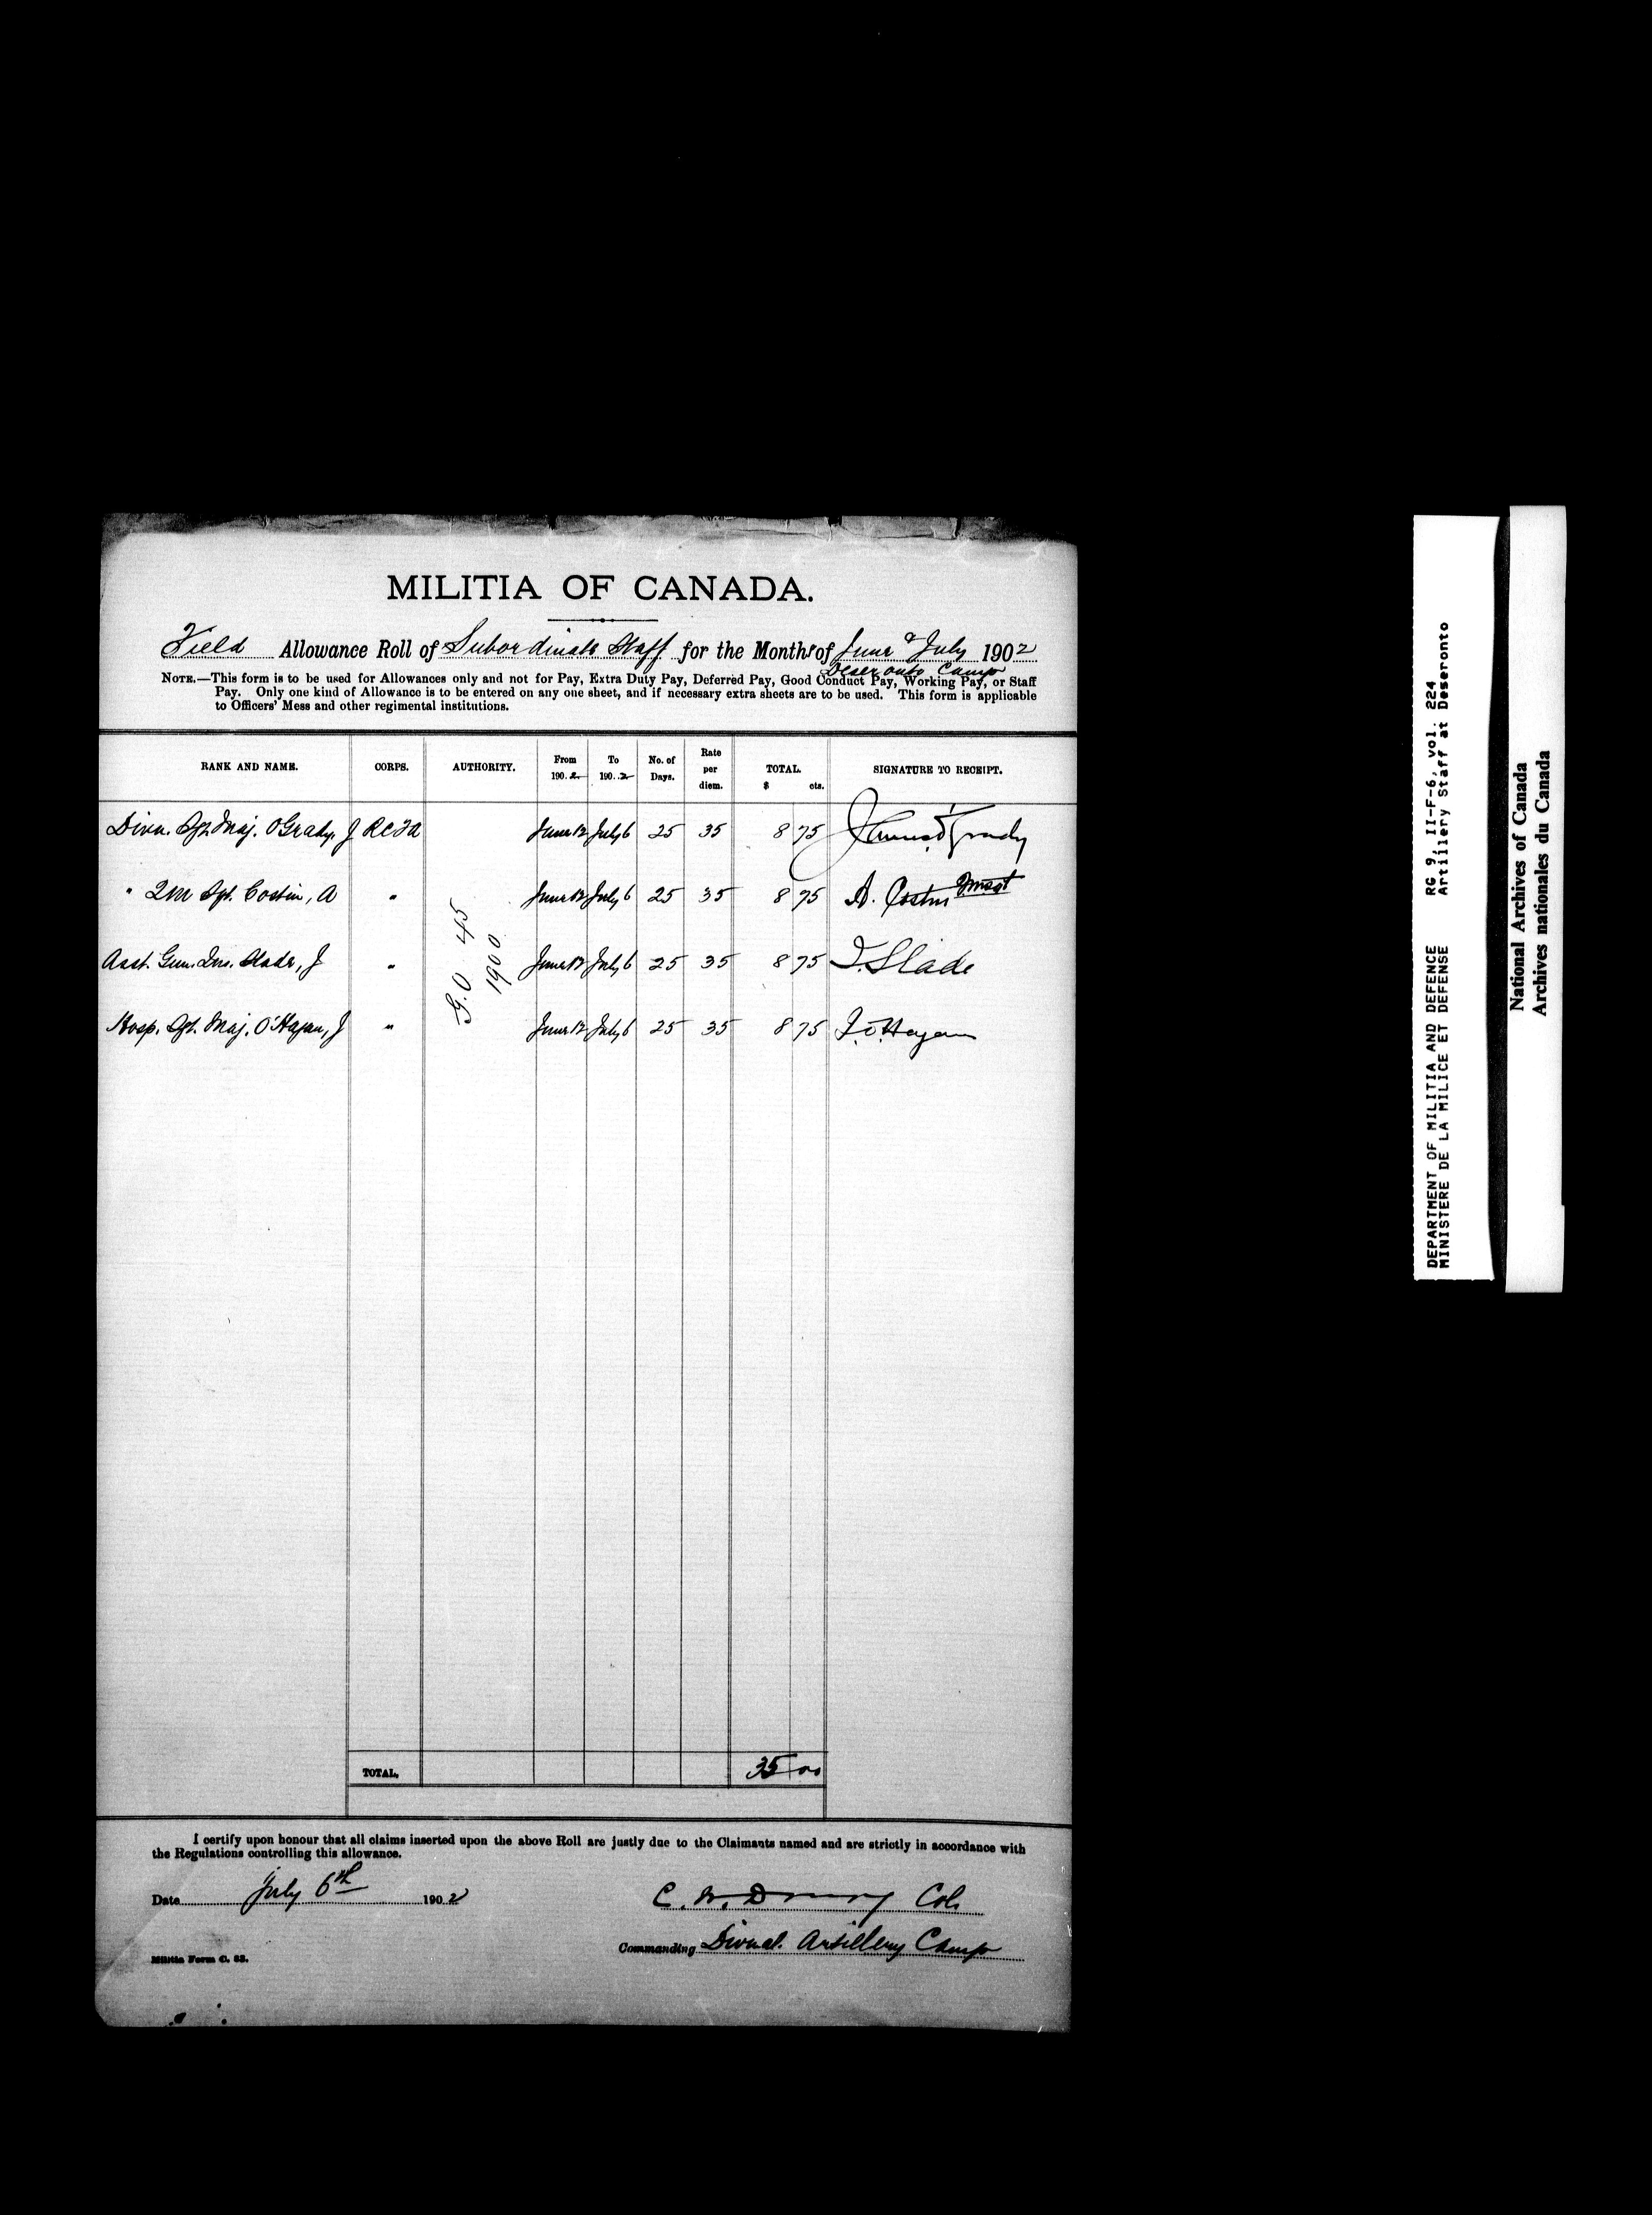 MILITIA OF CANADA.
Field Allowance Roll of Subordinate Staff for the Months of June & July 1902
Deseronto Camp
NOTE.—This form is to be used for Allowances only and not for Pay, Extra Duty Pay, Deferred Pay, Good Conduct Pay, Working Pay, or Staff
Pay. Only one kind of Allowance is to be entered on any one sheet, and if necessary extra sheets are to be used. This form is applicable
to Officers' Mess and other regimental institutions.
RANK AND NAME. CORPS. AUTHORITY. From 190.2 To 190.2 No. of Days. Rate per diem. TOTAL. $ cts. SIGNATURE TO RECEIPT.
Divn. Sgt Maj. O'Grady, J RCFA June 12 July 6 25 35 8 75 James O'Grady
" QM Sgt. Costin, A " June 12 July 6 25 35 8 75 A. Costin QMSgt
Asst. Gun. Ins. Slade, J " June 12 July 6 25 35 8 75 J. Slade
Hosp. Sgt. Maj. O'Hagan, J " June 12 July 6 25 35 8 75 J. O'Hagan
G.O 45
1900
TOTAL. 35 00
I certify upon honour that all claims inserted upon the above Roll are justly due to the Claimants named and are strictly in accordance with
the Regulations controlling this allowance.
Date July 6th 190.2
C. W. Drury Col.
Commanding Divnal. Artillery Camp
Militia Form C. 63.
DEPARTMENT OF MILITIA AND DEFENCE RG 9, II-F-6, vol. 224
MINISTERE DE LA MILICE ET DEFENSE Artillery Staff at Deseronto
National Archives of Canada
Archives nationales du Canada